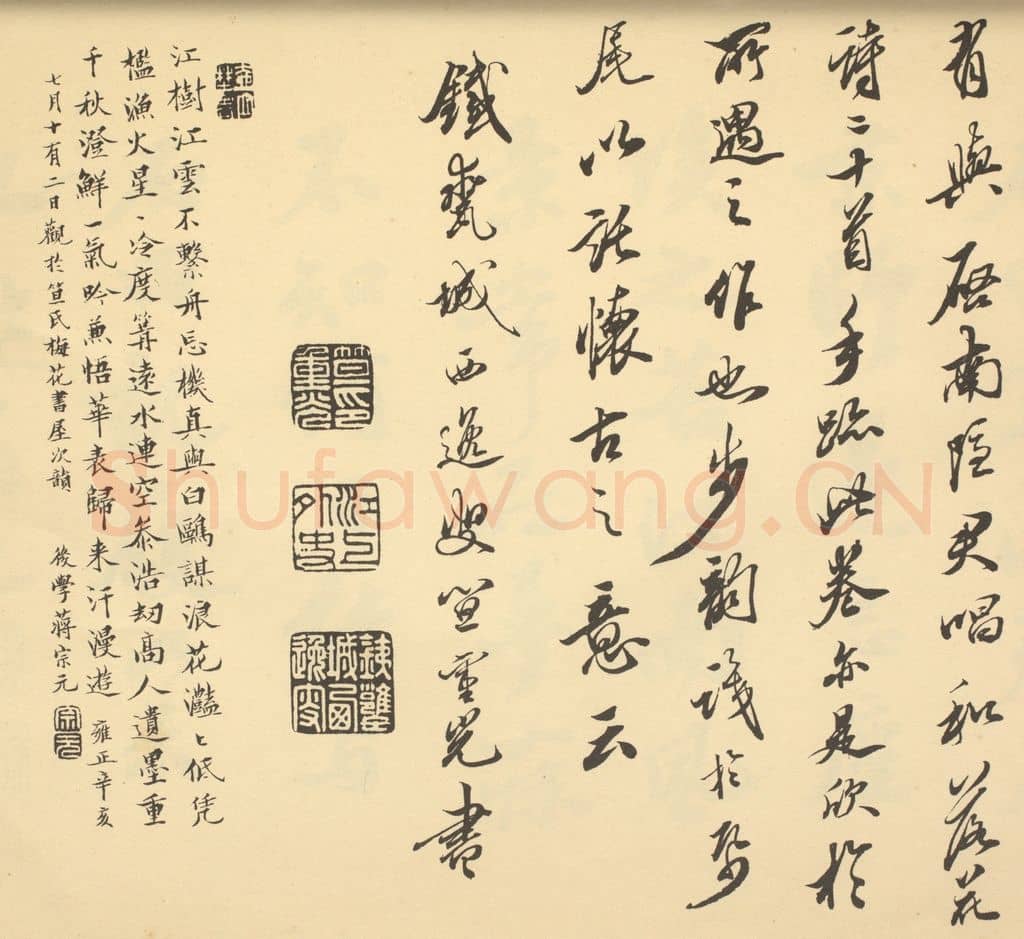 有與启南隐君唱和落花
詩二十首手跡此卷亦是欣於
所遇之作也步韵識於帋
尾以託懷古之意云
鐵甕城西逸叟笪重光書
笪印重光
江上外史
鐵甕城西逸叟
江樹江雲不繫舟忘機真與白鷗謀浪花灩〻低凭
檻漁火星〻冷度篝遠水連空泰浩劫高人遺墨重
千秋澄鮮一氣吟兼悟華表歸来汗漫遊 雍正辛亥
七月十有二日觀於笪氏梅花書屋次韻 後學蔣宗元
宗元
Shufawang.CN